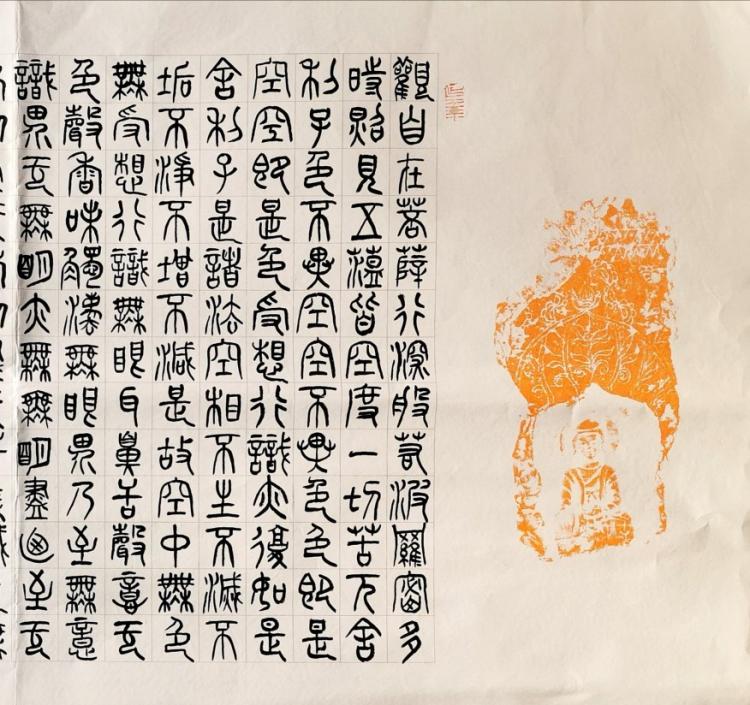 觀自在菩薩行深般若波羅蜜多
時照見五蘊皆空度一切苦厄舍
利子色不異空空不異色色即是
空空即是色受想行識亦復如是
舍利子是諸法空相不生不滅不
垢不淨不增不減是故空中無色
無受想行識無眼耳鼻舌聲意无
色聲香味觸法無眼界乃至無意
識界无無明亦無無明盡迺至无